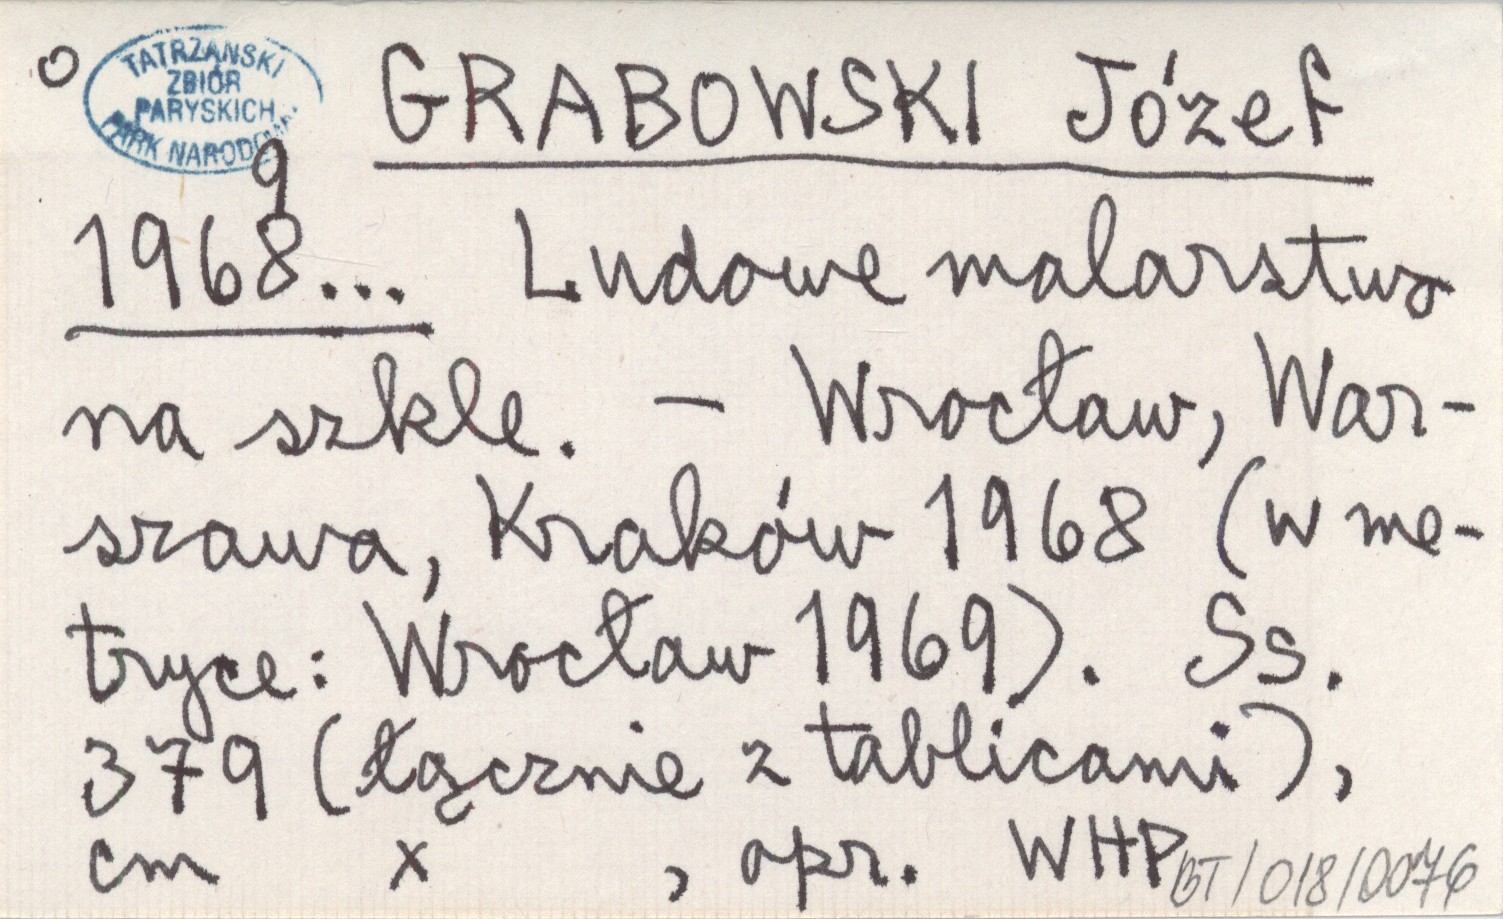 o
TATRZAŃSKI
ZBIÓR
PARYSKICH
PARK NARODOWY
GRABOWSKI Józef
9
1968... Ludowe malarstwo
na szkle. – Wrocław, War-
szawa, Kraków 1968 (w me-
tryce: Wrocław 1969). Ss.
379 (łącznie z tablicami),
cm x , opr. WHP
BT/018/0076